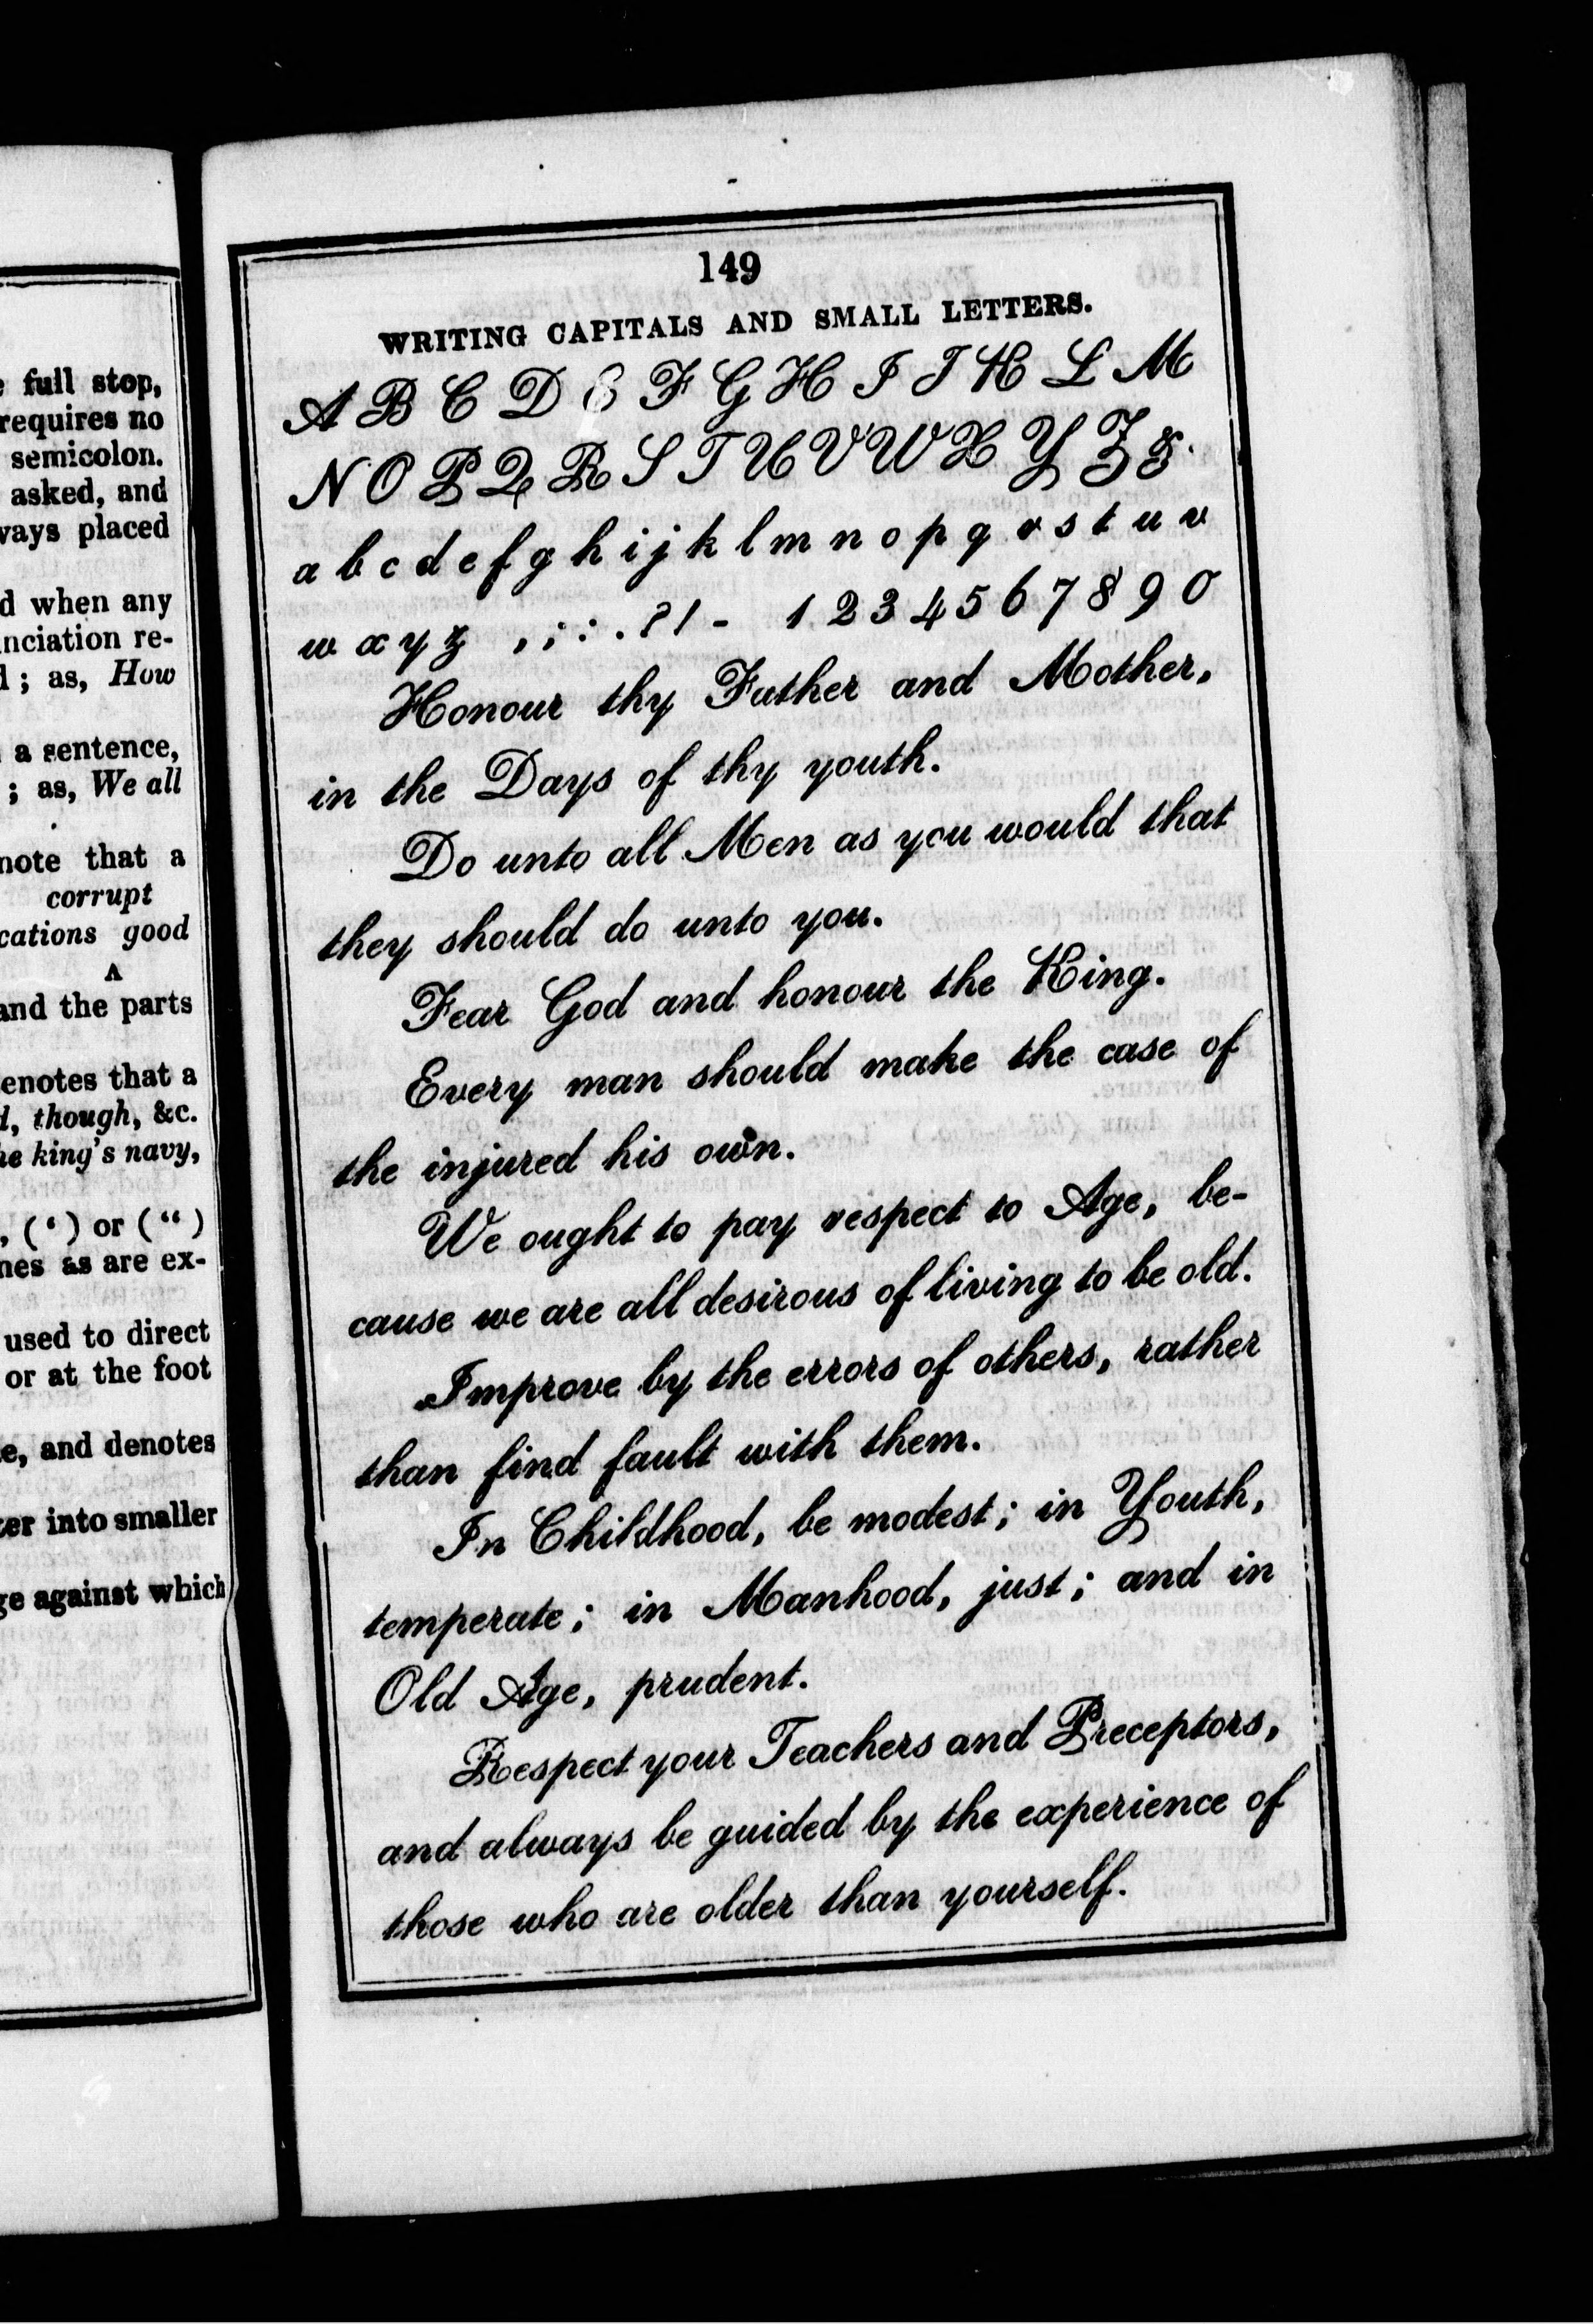 full stop,
requires no
semicolon.
asked, and
placed
when any
re-
; as, How
a sentence,
; as, We all
that a
corrupt
good
and the parts
that a
though, &c.
king's navy,
(‘) or (“)
as are ex-
used to direct
or at the foot
and denotes
into smaller
against which
149
WRITING CAPITALS AND SMALL LETTERS.
A B C D E F G H I J K L M
N O P Q R S T U V W X Y Z &.
a b c d e f g h i j k l m n o p q r s t u v
w x y z , ; : . ? ! - 1 2 3 4 5 6 7 8 9 0
Honour thy Father and Mother,
in the Days of thy youth.
Do unto all Men as you would that
they should do unto you.
Fear God and honour the King.
Every man should make the case of
the injured his own.
We ought to pay respect to Age, be-
cause we are all desirous of living to be old.
Improve by the errors of others, rather
than find fault with them.
In Childhood, be modest; in Youth,
temperate; in Manhood, just; and in
Old Age, prudent.
Respect your Teachers and Preceptors,
and always be guided by the experience of
those who are older than yourself.